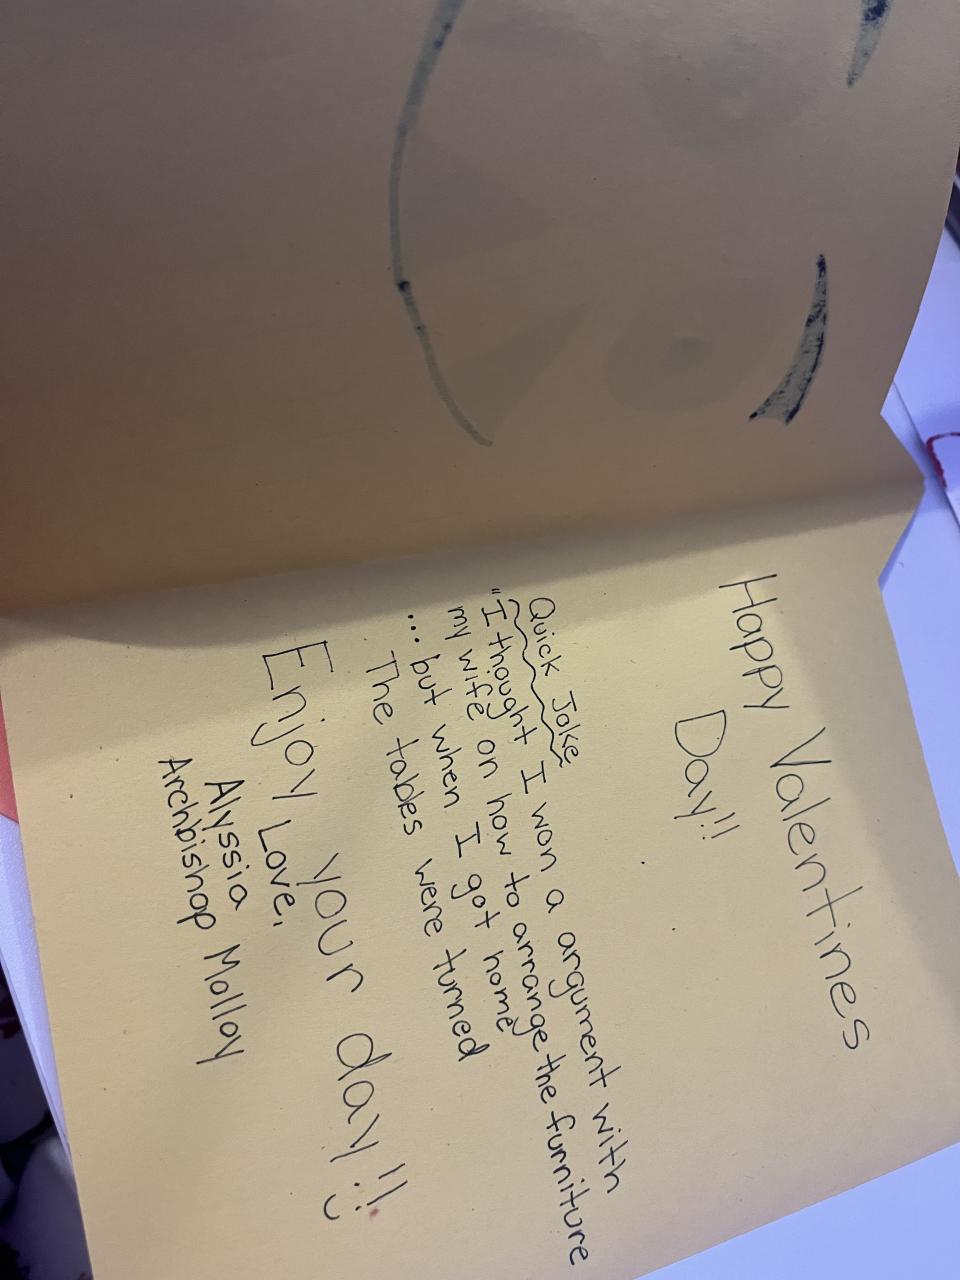 Happy Valentines
Day!!
Quick Joke
"I thought I won a argument with
my wife on how to arrange the furniture
... but when I got home
The tables were turned
Enjoy your day!!
Love,
Alyssia
Archbishop Molloy